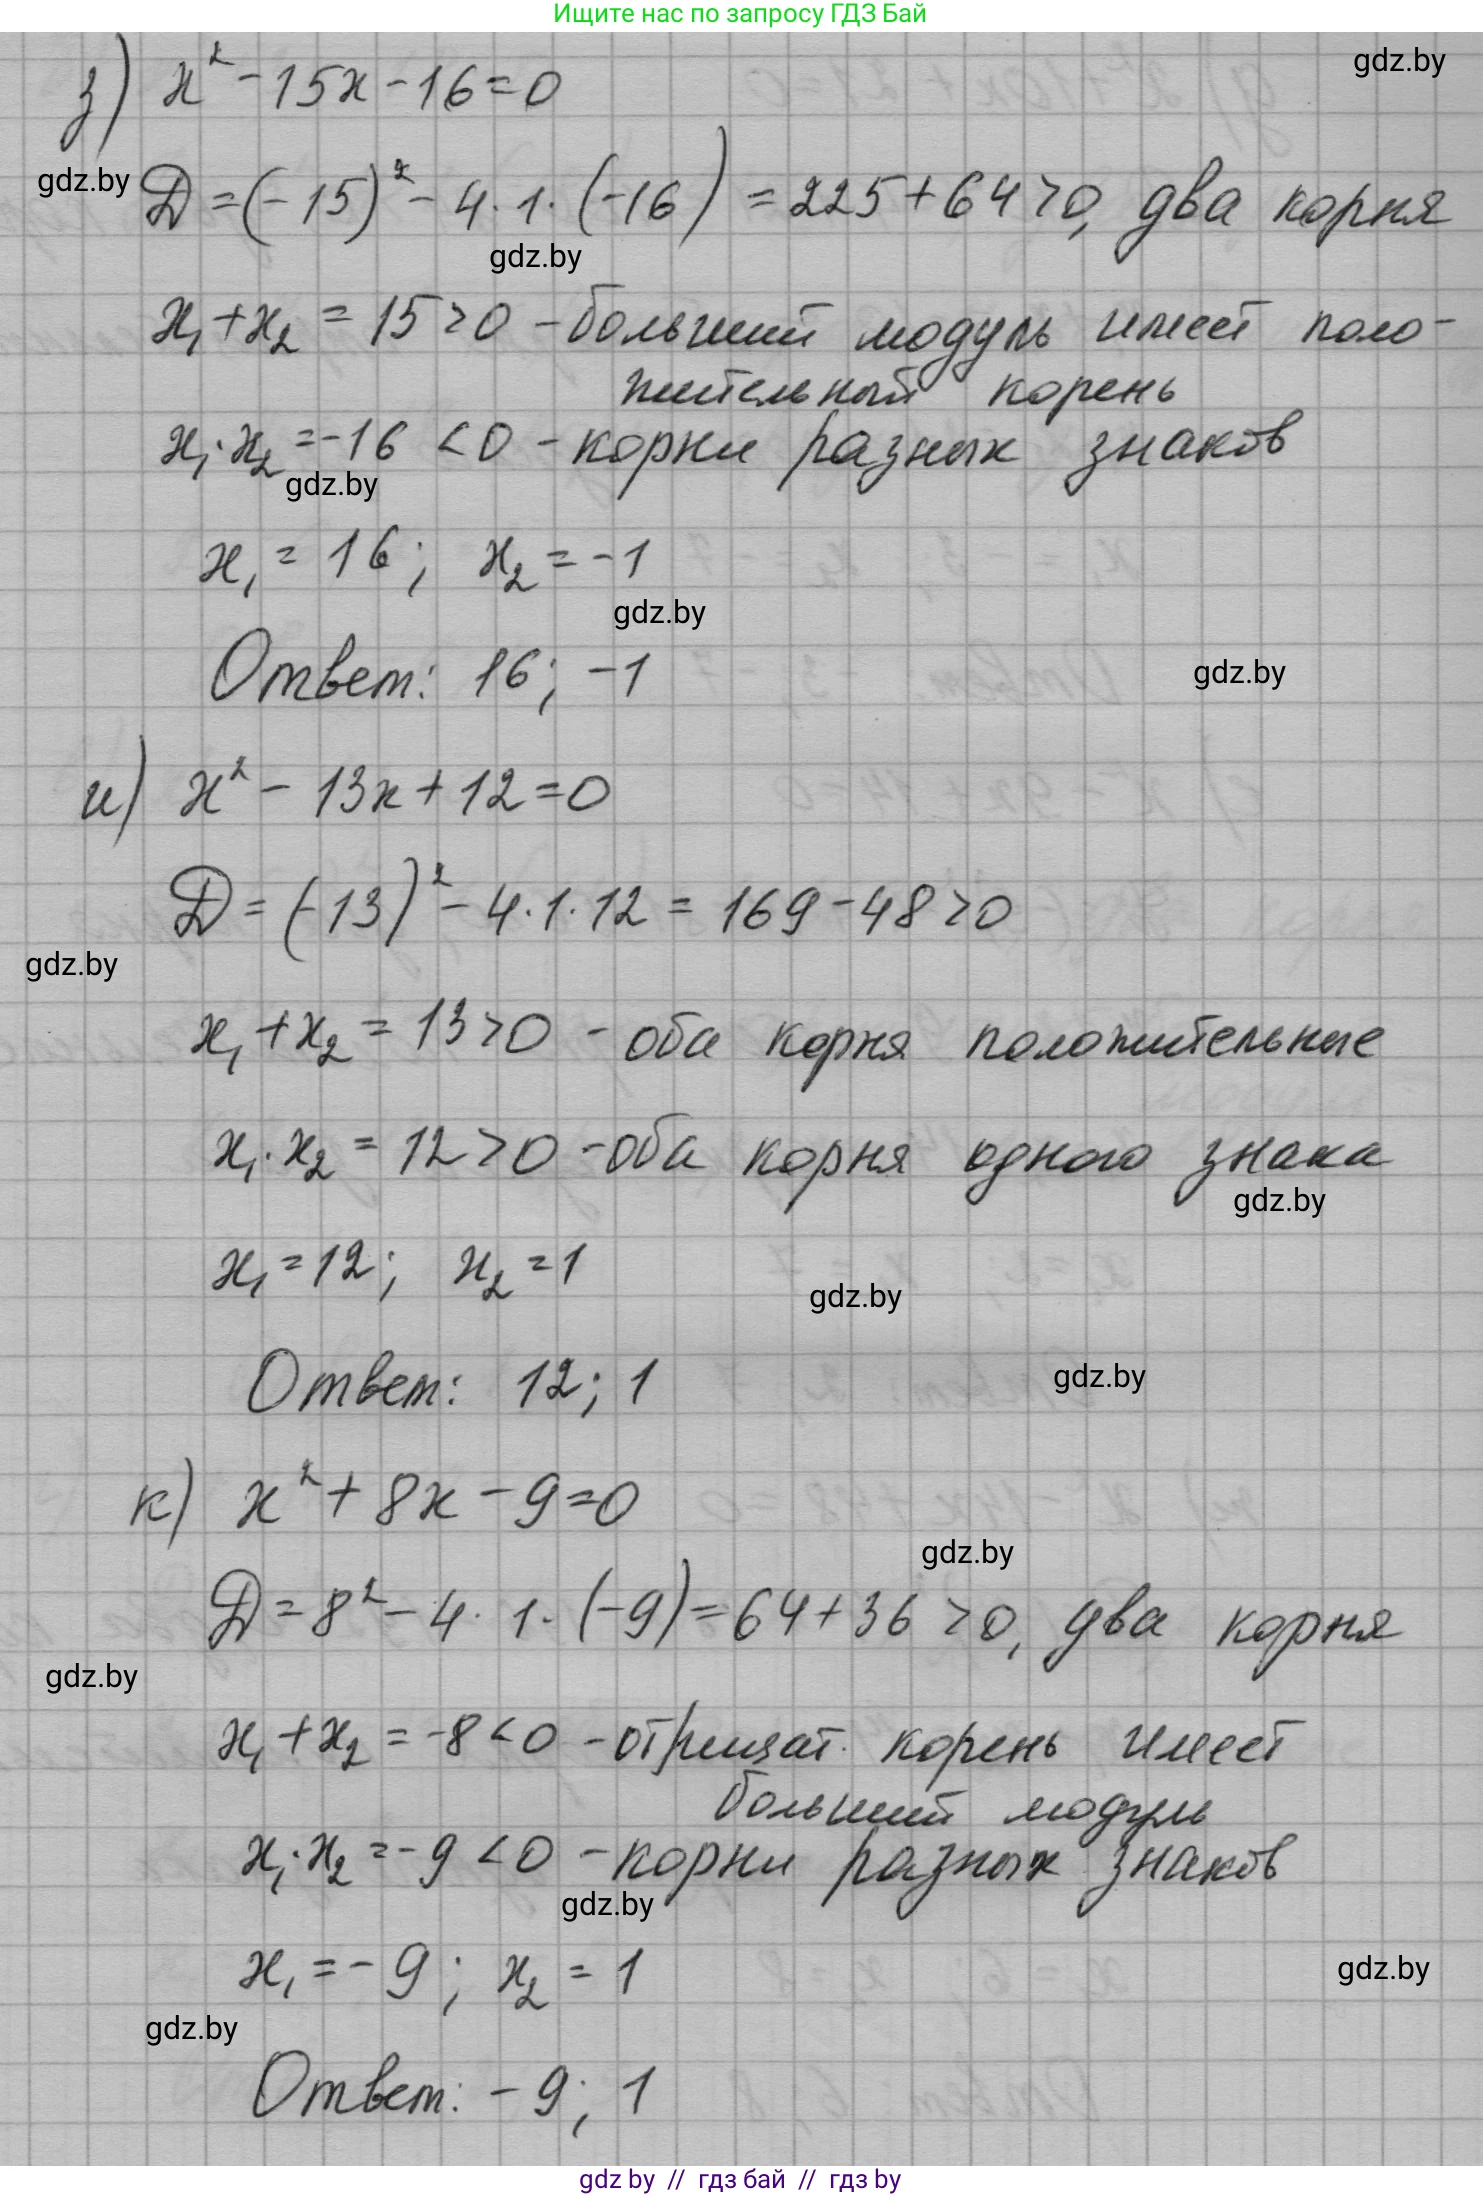 Ищите нас по запросу ГДЗ Бай
gdz.by
з) x² - 15x - 16 = 0
gdz.by
D = (-15)² - 4·1·(-16) = 225 + 64 > 0, два корня
gdz.by
x₁ + x₂ = 15 > 0 - больший модуль имеет поло-
жительный корень
x₁·x₂ = -16 < 0 - корни разных знаков
gdz.by
x₁ = 16; x₂ = -1
gdz.by
Ответ: 16; -1
gdz.by
и) x² - 13x + 12 = 0
D = (-13)² - 4·1·12 = 169 - 48 > 0
gdz.by
x₁ + x₂ = 13 > 0 - оба корня положительные
x₁·x₂ = 12 > 0 - оба корня одного знака
gdz.by
x₁ = 12; x₂ = 1
gdz.by
Ответ: 12; 1
gdz.by
к) x² + 8x - 9 = 0
gdz.by
D = 8² - 4·1·(-9) = 64 + 36 > 0, два корня
gdz.by
x₁ + x₂ = -8 < 0 - отрицат. корень имеет
больший модуль
x₁·x₂ = -9 < 0 - корни разных знаков
gdz.by
x₁ = -9; x₂ = 1
gdz.by
gdz.by
Ответ: -9; 1
gdz by // гдз бай // гдз by